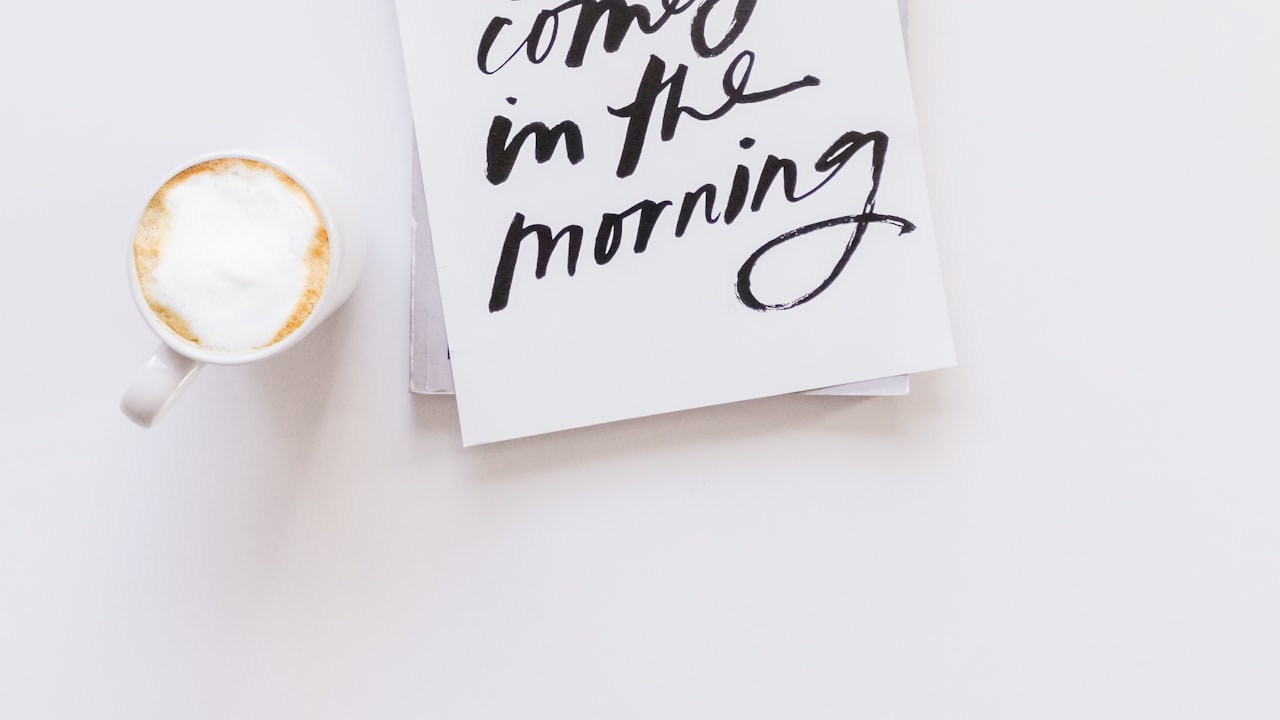 comes
in the
morning